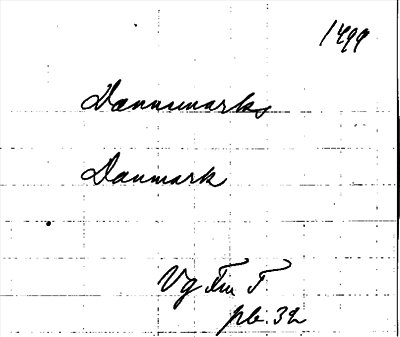 1499
Dannemarks
Danmark
Vg Fin T.
pb. 32